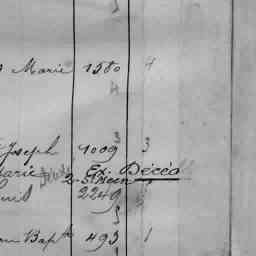 Marie 1580 4
4
3
Joseph 1009 3
Marie Ex. Décéd
2249
3
Bapte 493 1